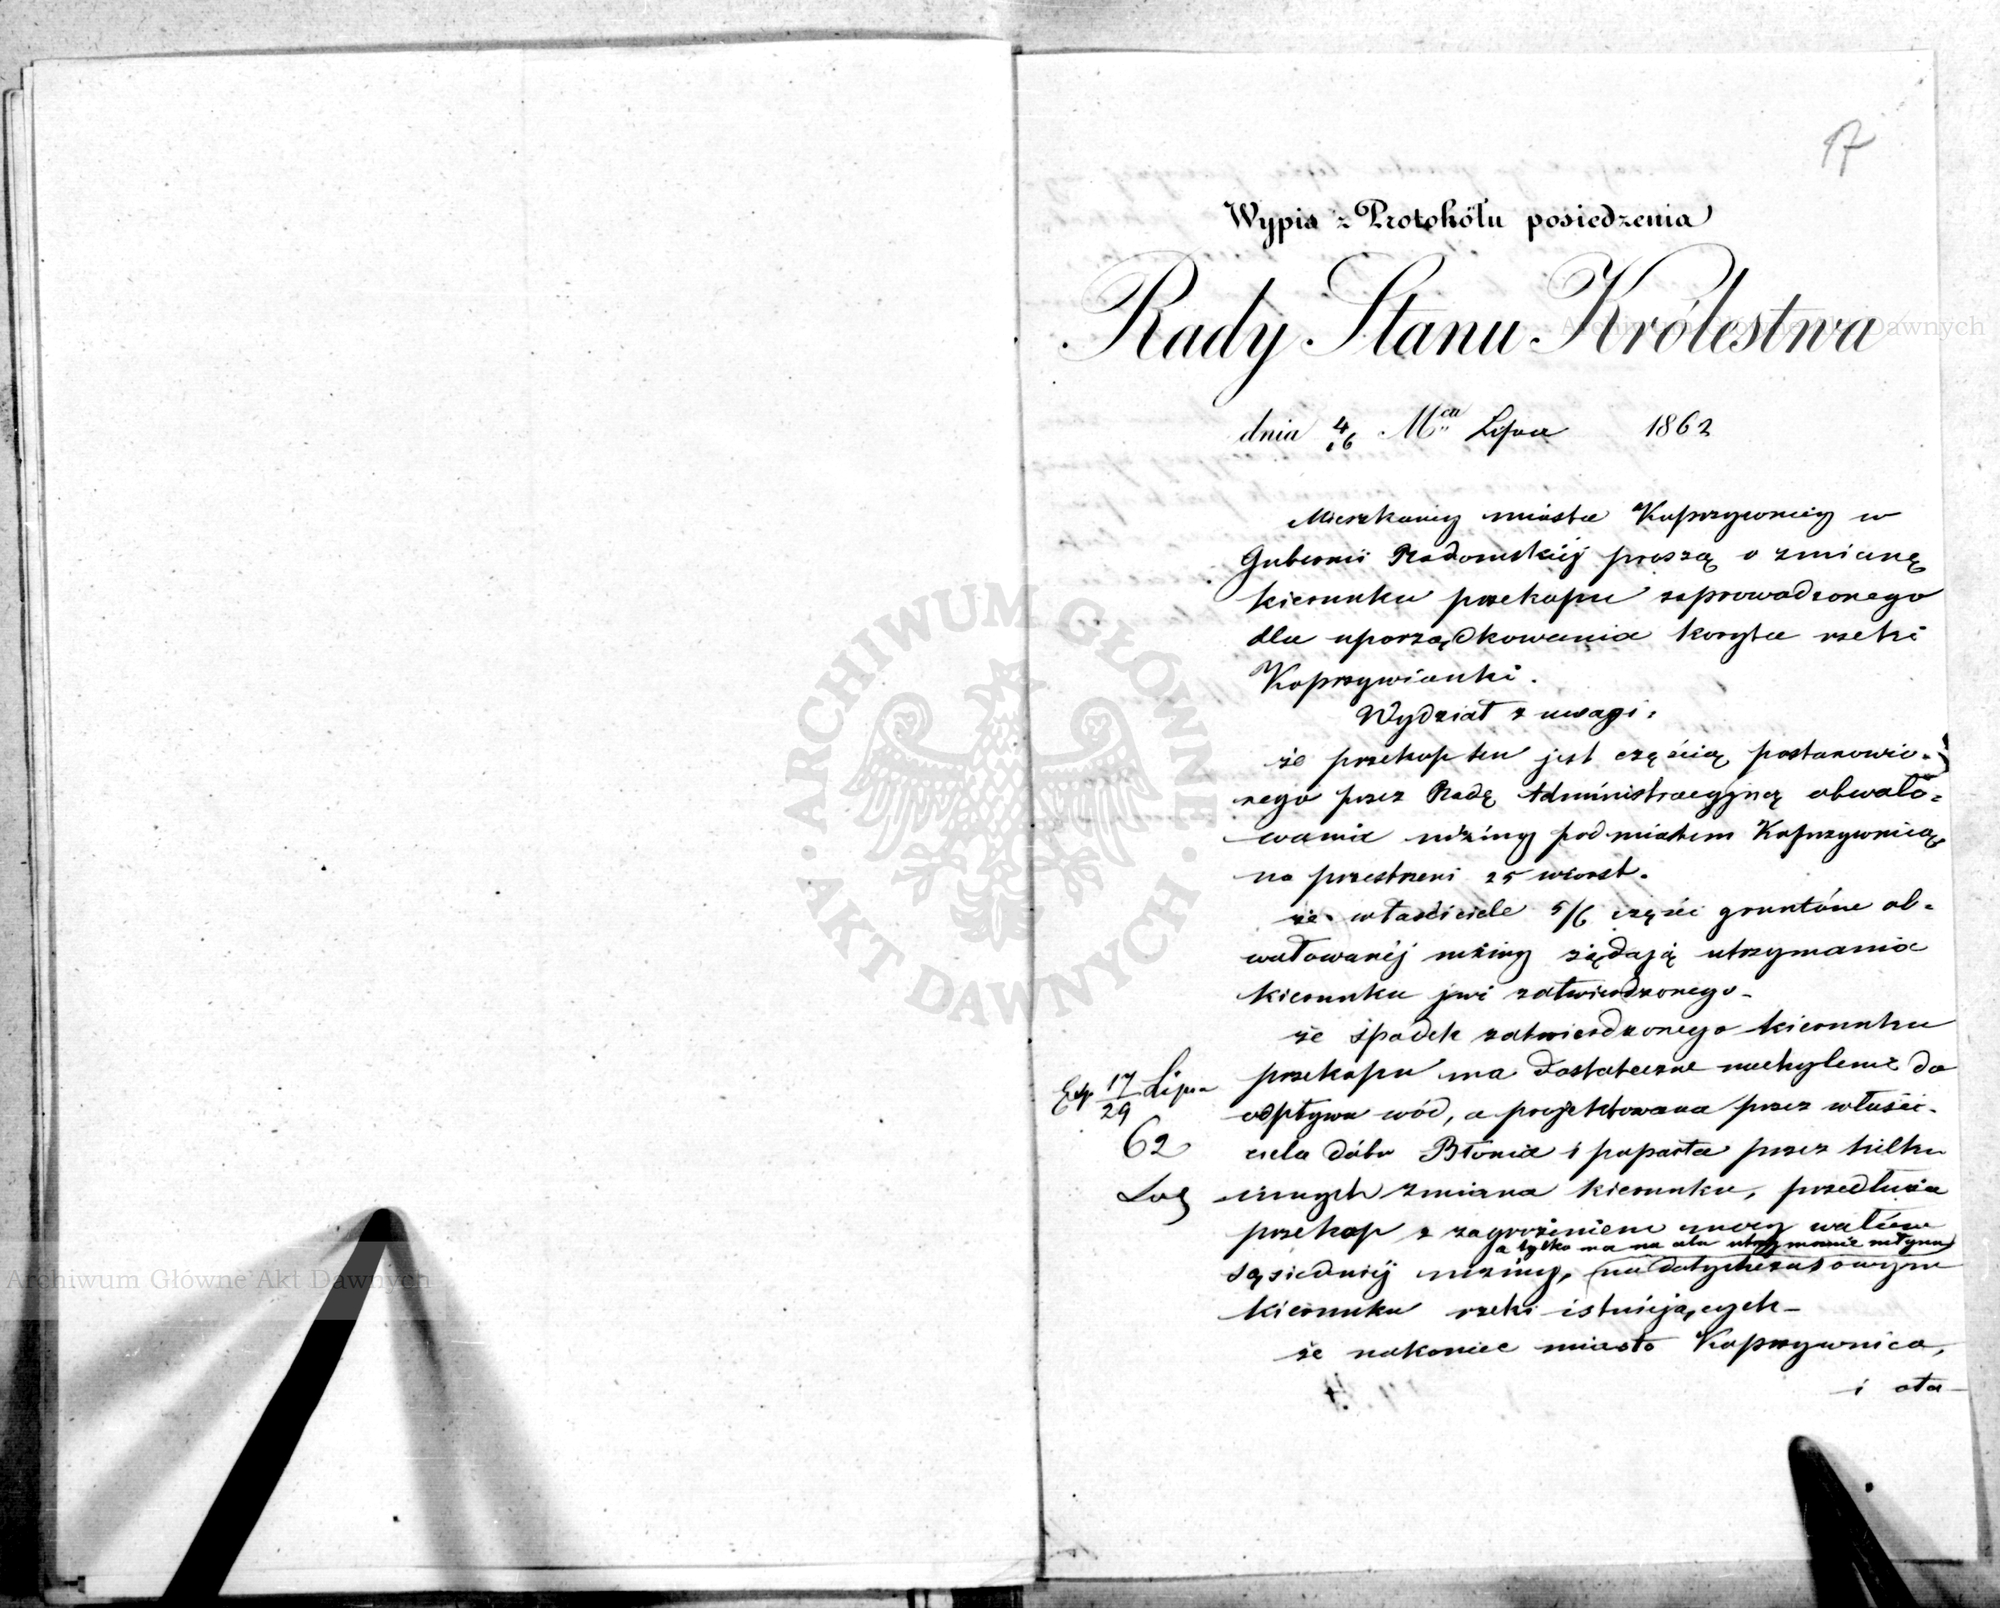 17
Wypis z Protokółu posiedzenia
Rady Stanu Królestwa
dnia 4/16 Mca Lipca 1862
Mieszkańcy miasta Koprzywnicy w
Gubernii Radomskiéj proszą o zmianę
kierunku przekopu zaprowadzonego
dla uporządkowania koryta rzeki
Koprzywianki.
Wydział z uwagi:
że przekop ten jest częścią postanowio-
nego przez Radę Administracyjną obwało-
wania niziny pod miastem Koprzywnicą
na przestrzeni 25 wiorst.
że właściciele 5/6 części gruntów ob-
wałowanéj niziny żądają utrzymania
kierunku już zatwierdzonego-
że spadek zatwierdzonego kierunku
przekopu ma dostateczne nachylenie do
odpływu wód, a projektowana przez właści-
ciela dóbr Błonia i poparta przez kilku
innych zmiana kierunku, przedłuża
przekop z zagrożeniem wałów
a tylko ma na celu utrzymanie młynu
sąsiedniéj niziny, na dotychczasowym
kierunku rzeki istniejących-
że nakoniec miasto Koprzywnica,
i oko-
Exp 17/29 Lipca
62
Archiwum Główne Akt Dawnych
Archiwum Główne Akt Dawnych
ARCHIWUM GŁÓWNE · AKT DAWNYCH ·